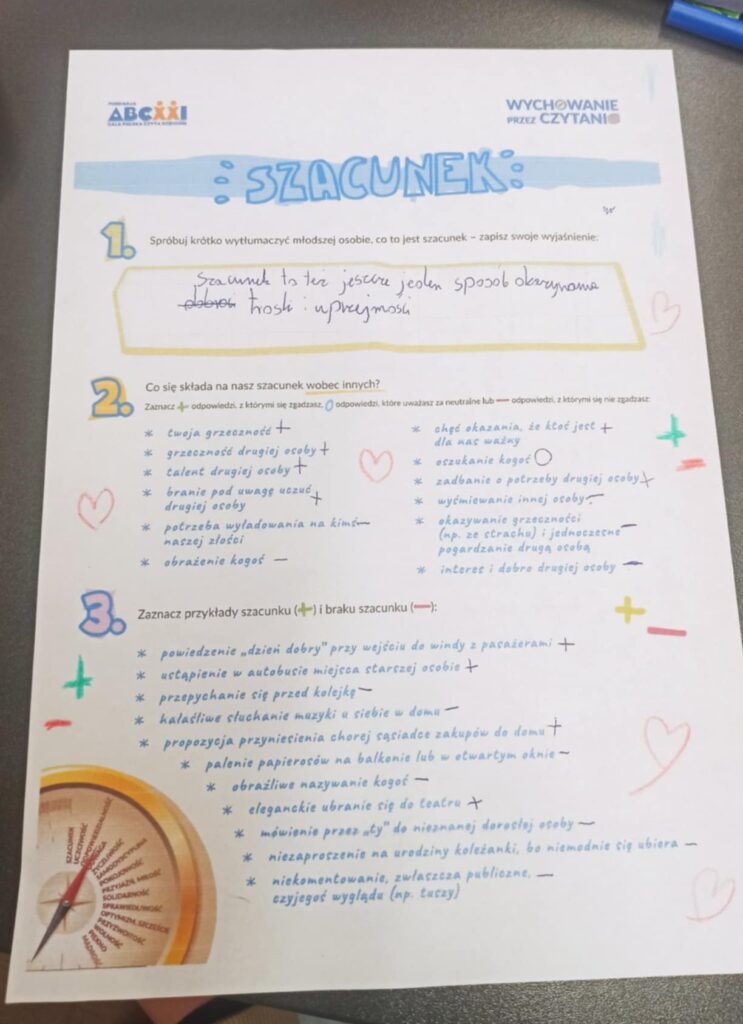 FUNDACJA
ABCXXI
CAŁA POLSKA CZYTA DZIECIOM
WYCHOWANIE
PRZEZ CZYTANIE
SZACUNEK
1. Spróbuj krótko wytłumaczyć młodszej osobie, co to jest szacunek – zapisz swoje wyjaśnienie:
Szacunek to też jeszcze jeden sposób okazywania
troski i uprzejmości
2. Co się składa na nasz szacunek wobec innych?
Zaznacz + odpowiedzi, z którymi się zgadzasz, O odpowiedzi, które uważasz za neutralne lub — odpowiedzi, z którymi się nie zgadzasz:
* twoja grzeczność +
* grzeczność drugiej osoby +
* talent drugiej osoby +
* branie pod uwagę uczuć +
drugiej osoby
* potrzeba wyładowania na kimś —
naszej złości
* obrażenie kogoś —
* chęć okazania, że ktoś jest +
dla nas ważny
* oszukanie kogoś O
* zadbanie o potrzeby drugiej osoby +
* wyśmiewanie innej osoby —
* okazywanie grzeczności
(np. ze strachu) i jednoczesne —
pogardzanie drugą osobą
* interes i dobro drugiej osoby —
+
—
3. Zaznacz przykłady szacunku (+) i braku szacunku (—):
+
—
* powiedzenie „dzień dobry” przy wejściu do windy z pasażerami +
* ustąpienie w autobusie miejsca starszej osobie +
* przepychanie się przed kolejkę —
* hałaśliwe słuchanie muzyki u siebie w domu —
* propozycja przyniesienia chorej sąsiadce zakupów do domu +
* palenie papierosów na balkonie lub w otwartym oknie —
* obraźliwe nazywanie kogoś —
* eleganckie ubranie się do teatru +
* mówienie przez „ty” do nieznanej dorosłej osoby —
* niezaproszenie na urodziny koleżanki, bo niemodnie się ubiera —
* niekomentowanie, zwłaszcza publiczne, —
czyjegoś wyglądu (np. tuszy)
+
—
SZACUNEK
UCZCIWOŚĆ
ODPOWIEDZIALNOŚĆ
ODWAGA
ŻYCZLIWOŚĆ
SAMODYSCYPLINA
POKOJOWOŚĆ
PRZYJAŹŃ, MIŁOŚĆ
SOLIDARNOŚĆ
SPRAWIEDLIWOŚĆ
OPTYMIZM, SZCZĘŚCIE
PRZYZWOITOŚĆ
WOLNOŚĆ
PIĘKNO
MĄDROŚĆ